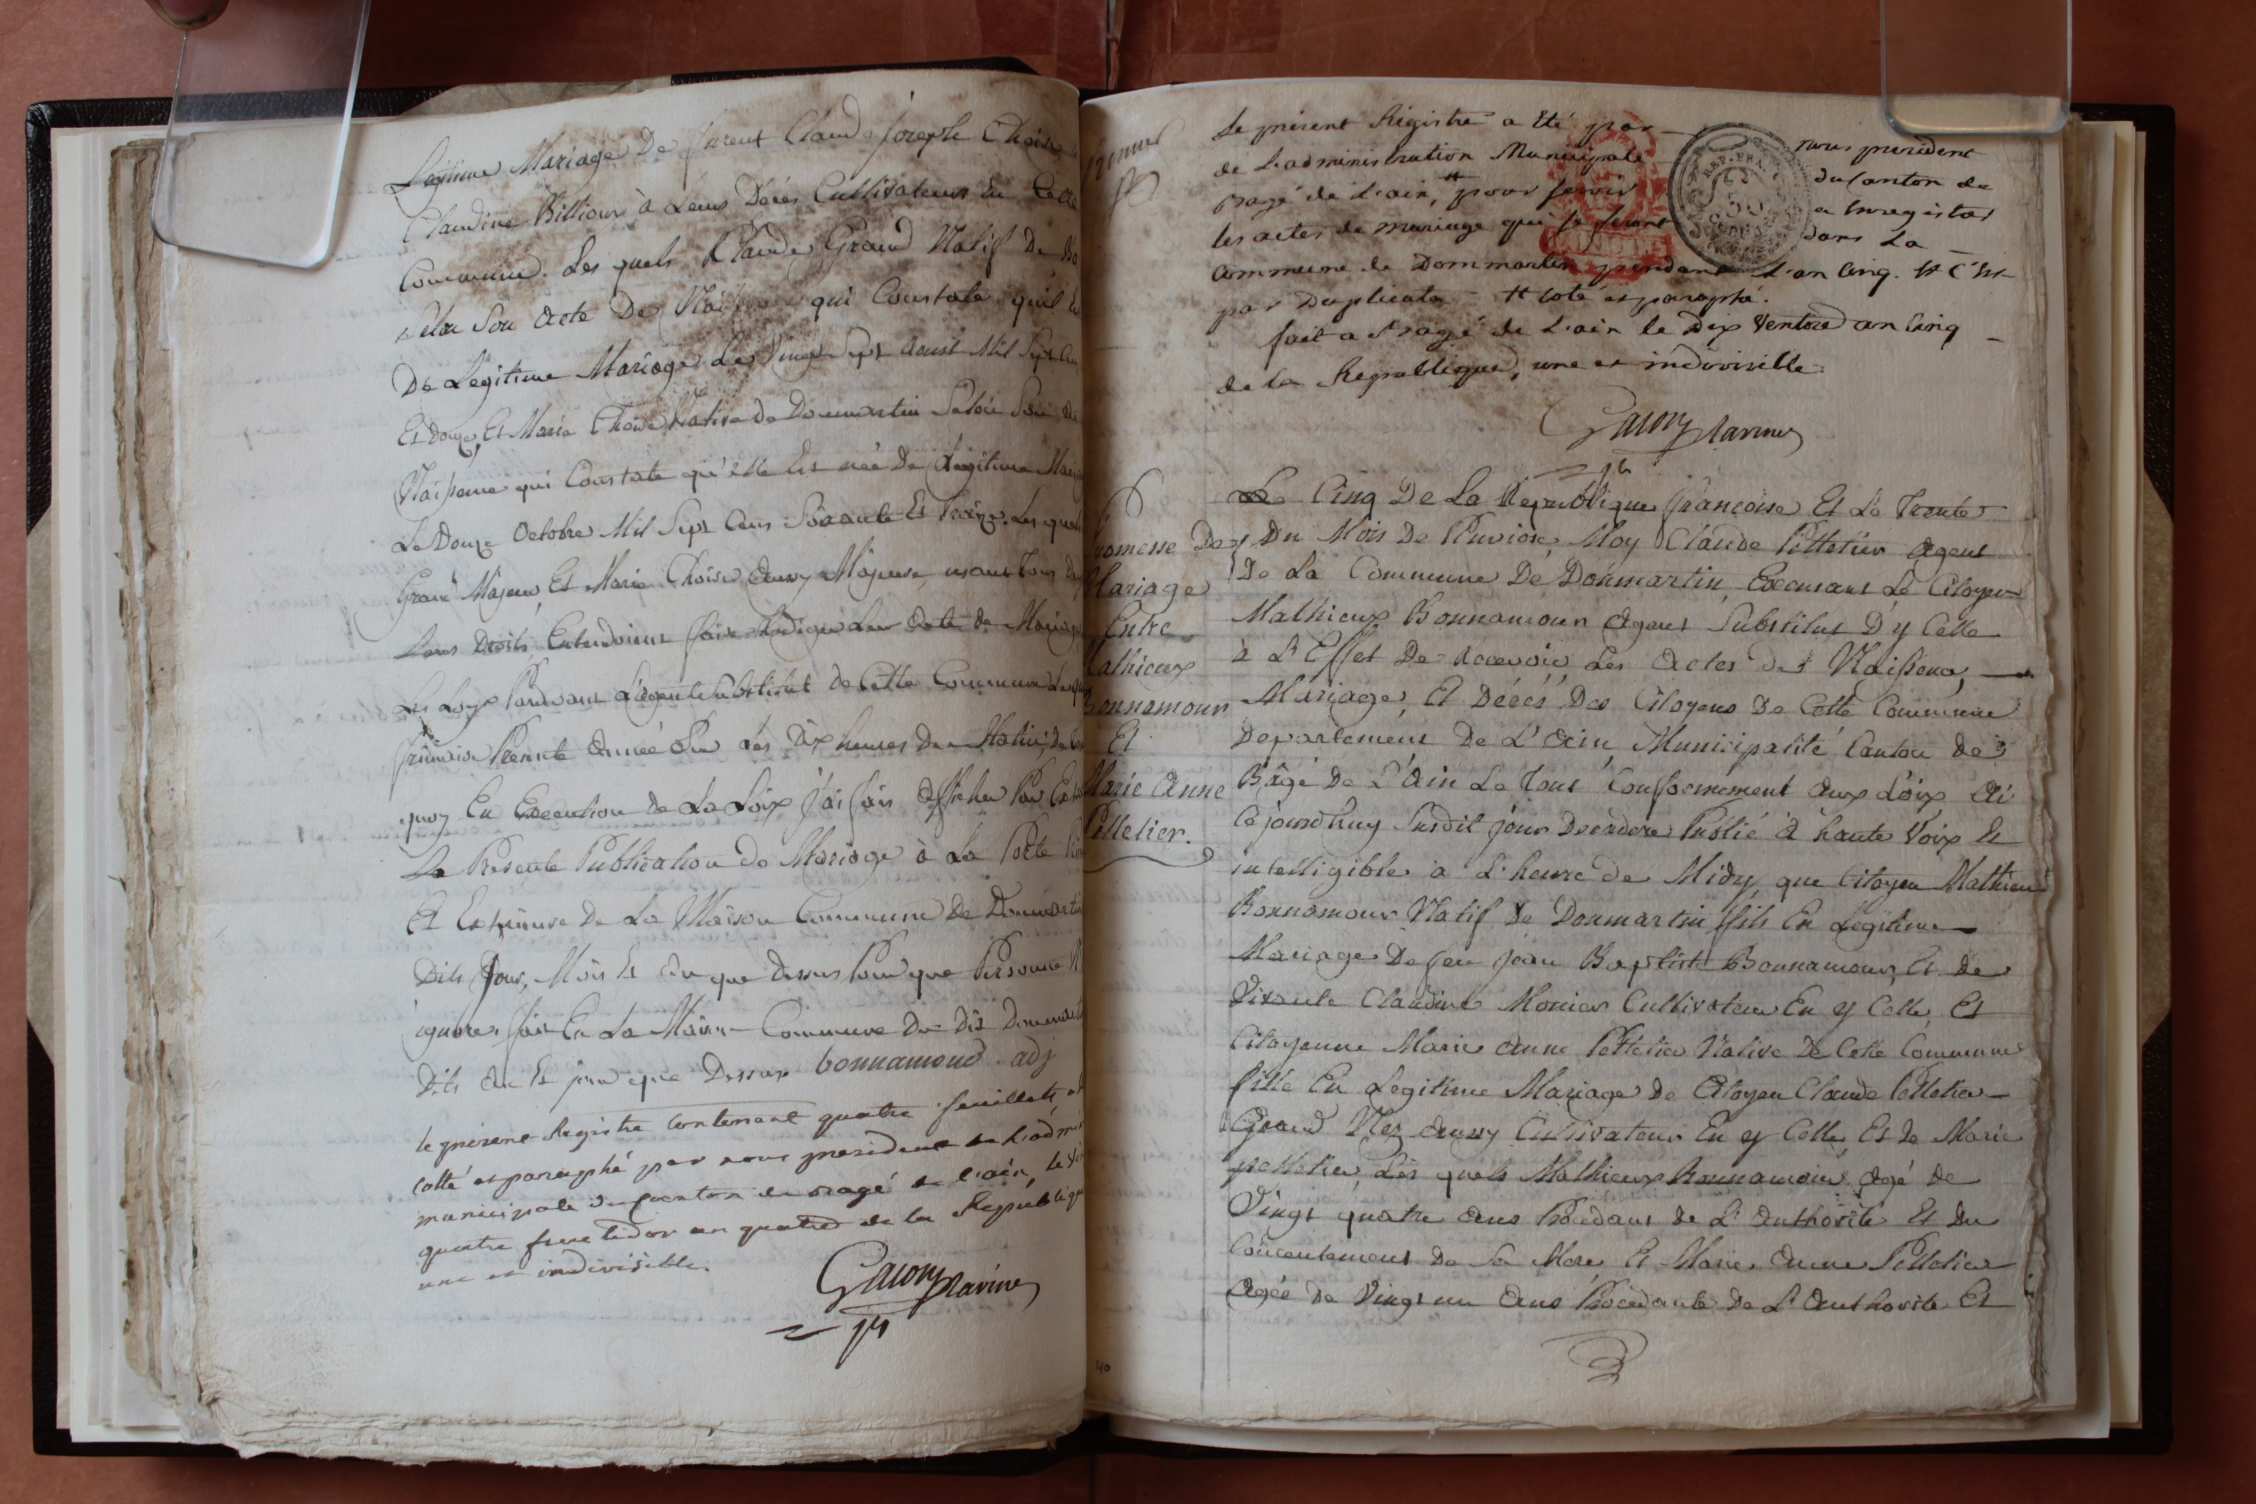 Legitime Mariage De furent Claud Joseph Chois
Claudine Billioux à Leurs Décés Cultivateurs En Celle
Commune. Les quels Claude Grand Natif De
Selon Son Acte De qui Constate quil
De Légitime Mariage Le Vingt Sept Aoust Mil Sept
Et Douze, Et Marie Choise Native de Dommartin Selon Son
Naissance qui Constate qu'elle Est née De Légitime
Le Douze Octobre Mil Sept Cens Soixante Et Treize. Les quels
Grand Majeur, Et Marie Choise Aussy Majeure usant Tous
Leurs Droits, Entendoient faire Rediger Leur Acte de Mariage
Les Loyx Pardevant L'agent Substitut de Cette Commune
frimaire Presente Année Sur Les Dix heures Du Matin,
quoy En Execution de La Loix J'ai fais afficher Par
La Presente Publication de Mariage à La Porte
Et Exterieure de La Maison Commune de Dommartin
Dits Jour, Mois Et An que Dessus Pour que Personne
ignore. fait En La Maison Commune Du Dit Dommartin
Dits An Et jour que Dessus bonnamour adj
le présent Registre Contenant quatre feuillets a
cotté et paraphé par nous president de l'adm
municipale du Canton de Bagé de l'ain, le
quatre fructidor an quatre de la République
une et indivisible.
Gacon
Le présent Registre a été par nous president
de L'administration Municipale du Canton de
Bagé de L'ain, # pour servir a Enregistrer
les actes de mariage qui se feront dans La
Commune de Dommartin pendant L'an Cinq. Et C'est
par Duplicata # coté et paraphé.
fait a Bagé de L'ain le Dix Ventose an Cinq
de la République, une et indivisible.
Gacon
REP. FRA.
Promesse De
Mariage
Entre
Mathieux
Bonnamour
Et
Marie Anne
Pelletier.
Le Cinq De La Republique françoise Et Le Trente
Du Mois De Pluviose, Moy Claude Pelletier Agent
De La Commune De Donmartin, Excusant Le Citoyen
Mathieux Bonnamour Agent Substitut D'y Celle
à L'Effet De recevoir Les Actes de Naissence,
Mariage, Et Décés Des Citoyens De Cette Commune
Departement De L'Ain, Municipalité Canton de
Bâgé De L'Ain Le Tout Conformement Aux Loix Ai
Cejourdhuy Susdit jour Decadere Publié à haute Voix Et
intelligible à L'heure de Midy, que Citoyen Mathieu
Bonnamour Natif De Donmartin fils En Legitime
Mariage De feu Jean Baptiste Bonnamour, Et De
Vivante Claudine Monier Cultivateur En y Celle, Et
Citoyenne Marie Anne Pelletier Native De Cette Commune
fille En Legitime Mariage De Citoyen Claude Pelletier
Grand Nez Aussy Cultivateur En y Celle Et De Marie
pelletier, Les quels Mathieux Bonnamour, Agé de
Vingt quatre Ans Procedant De L'Authorité Et Du
Consentement De Sa Mere Et Marie Anne Pelletier
Agée De Vingt un Ans Procedante De L'Authorite Et
40